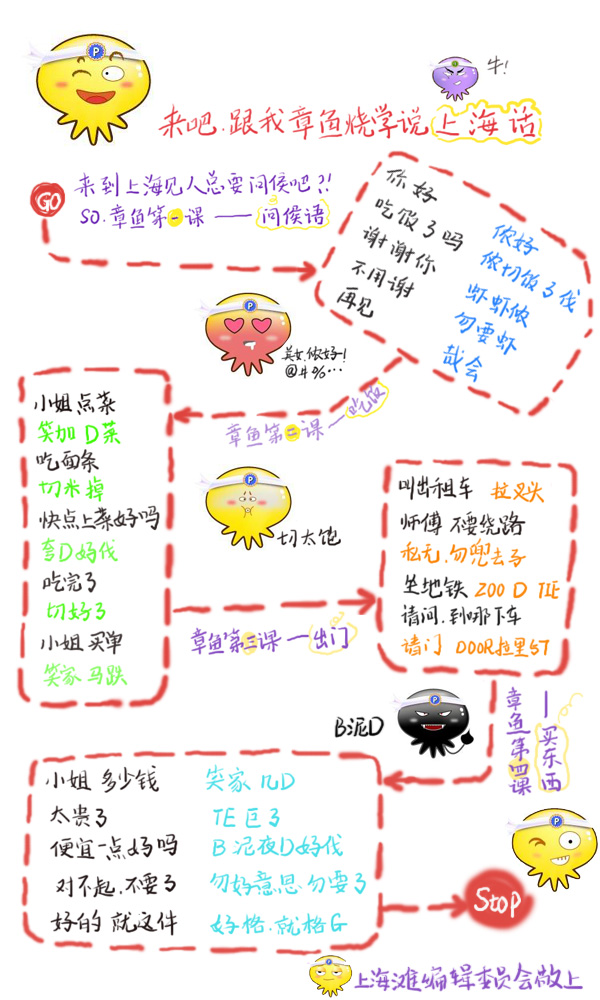 牛!
来吧.跟我章鱼烧学说上海话
GO
来到上海见人总要问侯吧?!
SO.章鱼第一课——问侯语
你好
吃饭了吗
谢谢你
不用谢
再见
侬好
侬切饭了伐
虾虾侬
勿要虾
哉会
美女侬好!
@#%…
章鱼第二课—吃饭
小姐点菜
笑加D菜
吃面条
切米掉
快点上菜好吗
夸D好伐
吃完了
切好了
小姐买单
笑家马跌
切太饱
章鱼第三课—出门
叫出租车 拉叉头
师傅不要绕路
私无.勿兜去子
坐地铁 ZOO D TIE
请问.到哪下车
请门 DOOR拉里5T
B泥D
章鱼第四课
—买东西
小姐多少钱 笑家几D
太贵了 TE巨了
便宜一点好吗 B泥夜D好伐
对不起.不要了 勿好意思.勿要了
好的就这件 好格.就格G
Stop
上海滩编辑委员会敬上